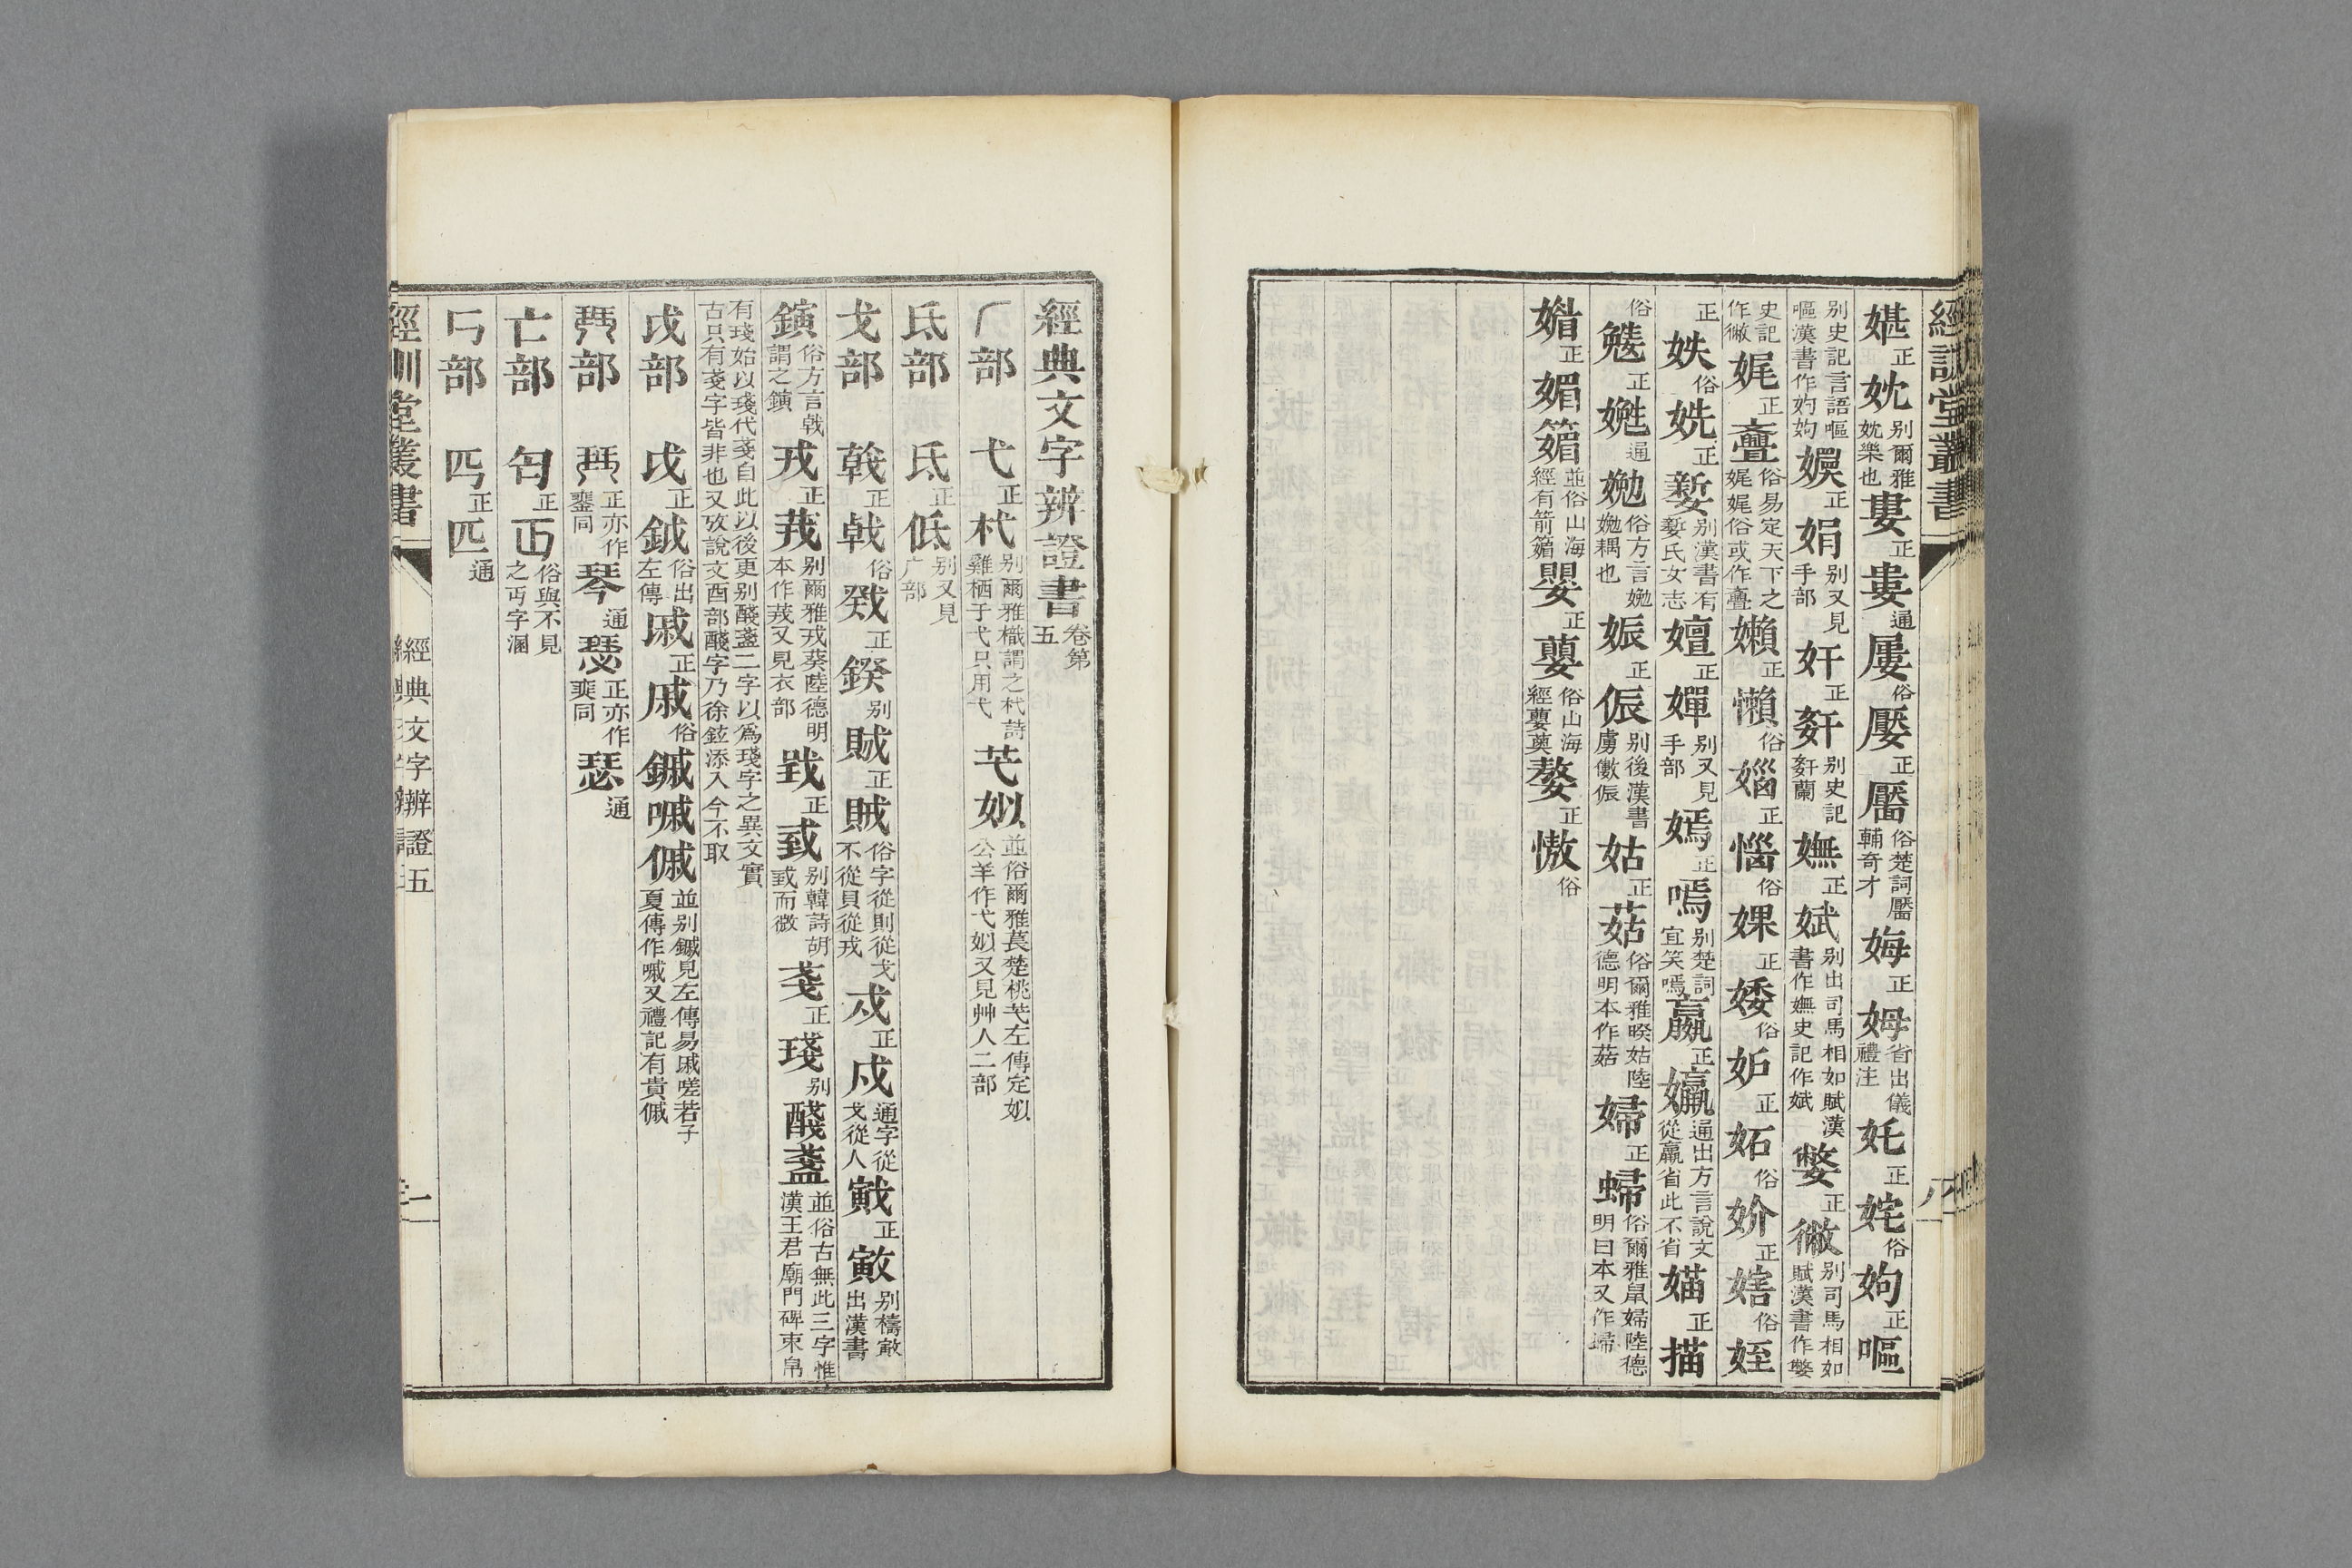 經訓堂叢書
媅正妉别爾雅妉樂也婁正婁通屢俗嬮正靨俗楚詞靨輔奇才娒正姆省出儀禮注奼正姹俗姁正嘔
别史記言語嘔嘔漢書作姁姁嬽正娟别又見手部奸正姧别史記姧蘭嫵正娬别出司馬相如賦漢書作嫵史記作娬嫳正徶别司馬相如賦漢書作嫳
史記作徶娓正亹俗易定天下之娓娓俗或作亹嬾正懶俗㛴正惱俗婐正婑俗妒正妬俗妎正㛾俗姪正
正妷俗姺正㜪别漢書有㜪氏女志嬗正嬋别又見手部嫣正嘕别楚詞宜笑嘕嬴正㜲通出方言說文從羸省此不省媌正描
俗正通俗方言耦也娠正侲别後漢書虜儌侲姑正菇俗爾雅睽姑陸德明本作菇婦正蝂俗爾雅鼠婦陸德明曰本又作
媘正媚䈞並俗山海經有箭䈞嬰正蘡俗山海經蘡薁嫯正慠俗
經典文字辨證書卷第五
厂部 弋正杙别爾雅樴謂之杙詩雞栖于弋只用弋芅姒並俗爾雅萇楚桃芅左傳定姒公羊作弋姒又見艸人二部
氐部 氐正低别又見广部
戈部 戟正戟俗戣正鍨别賊正賊俗字從則從戈不從貝從戎戍正戍通字從戈從人戭正别檮出漢書
鏔俗方言戟謂之鏔戎正茙别爾雅戎葵陸德明本作茙又見衣部戜正䤛别韓詩胡而微戔正琖别醆盞並俗古無此三字惟漢王君廟門碑束帛
有琖始以琖代戔自此以後更别醆盞二字以爲琖字之異文實古只有戔字皆非也又攷說文酉部醆字乃徐鉉添入今不取
戉部 戉正鉞俗出左傳戚正戚俗鏚嘁傶並别鏚見左傳易戚嗟若子夏傳作嘁又禮記有貴傶
琴部 珡正亦作鑋同琴通正亦作爽同瑟通
亡部 匃正丏俗與不見之丏字溷
匸部 匹正匹通
經訓堂叢書
經典文字辨證五
一